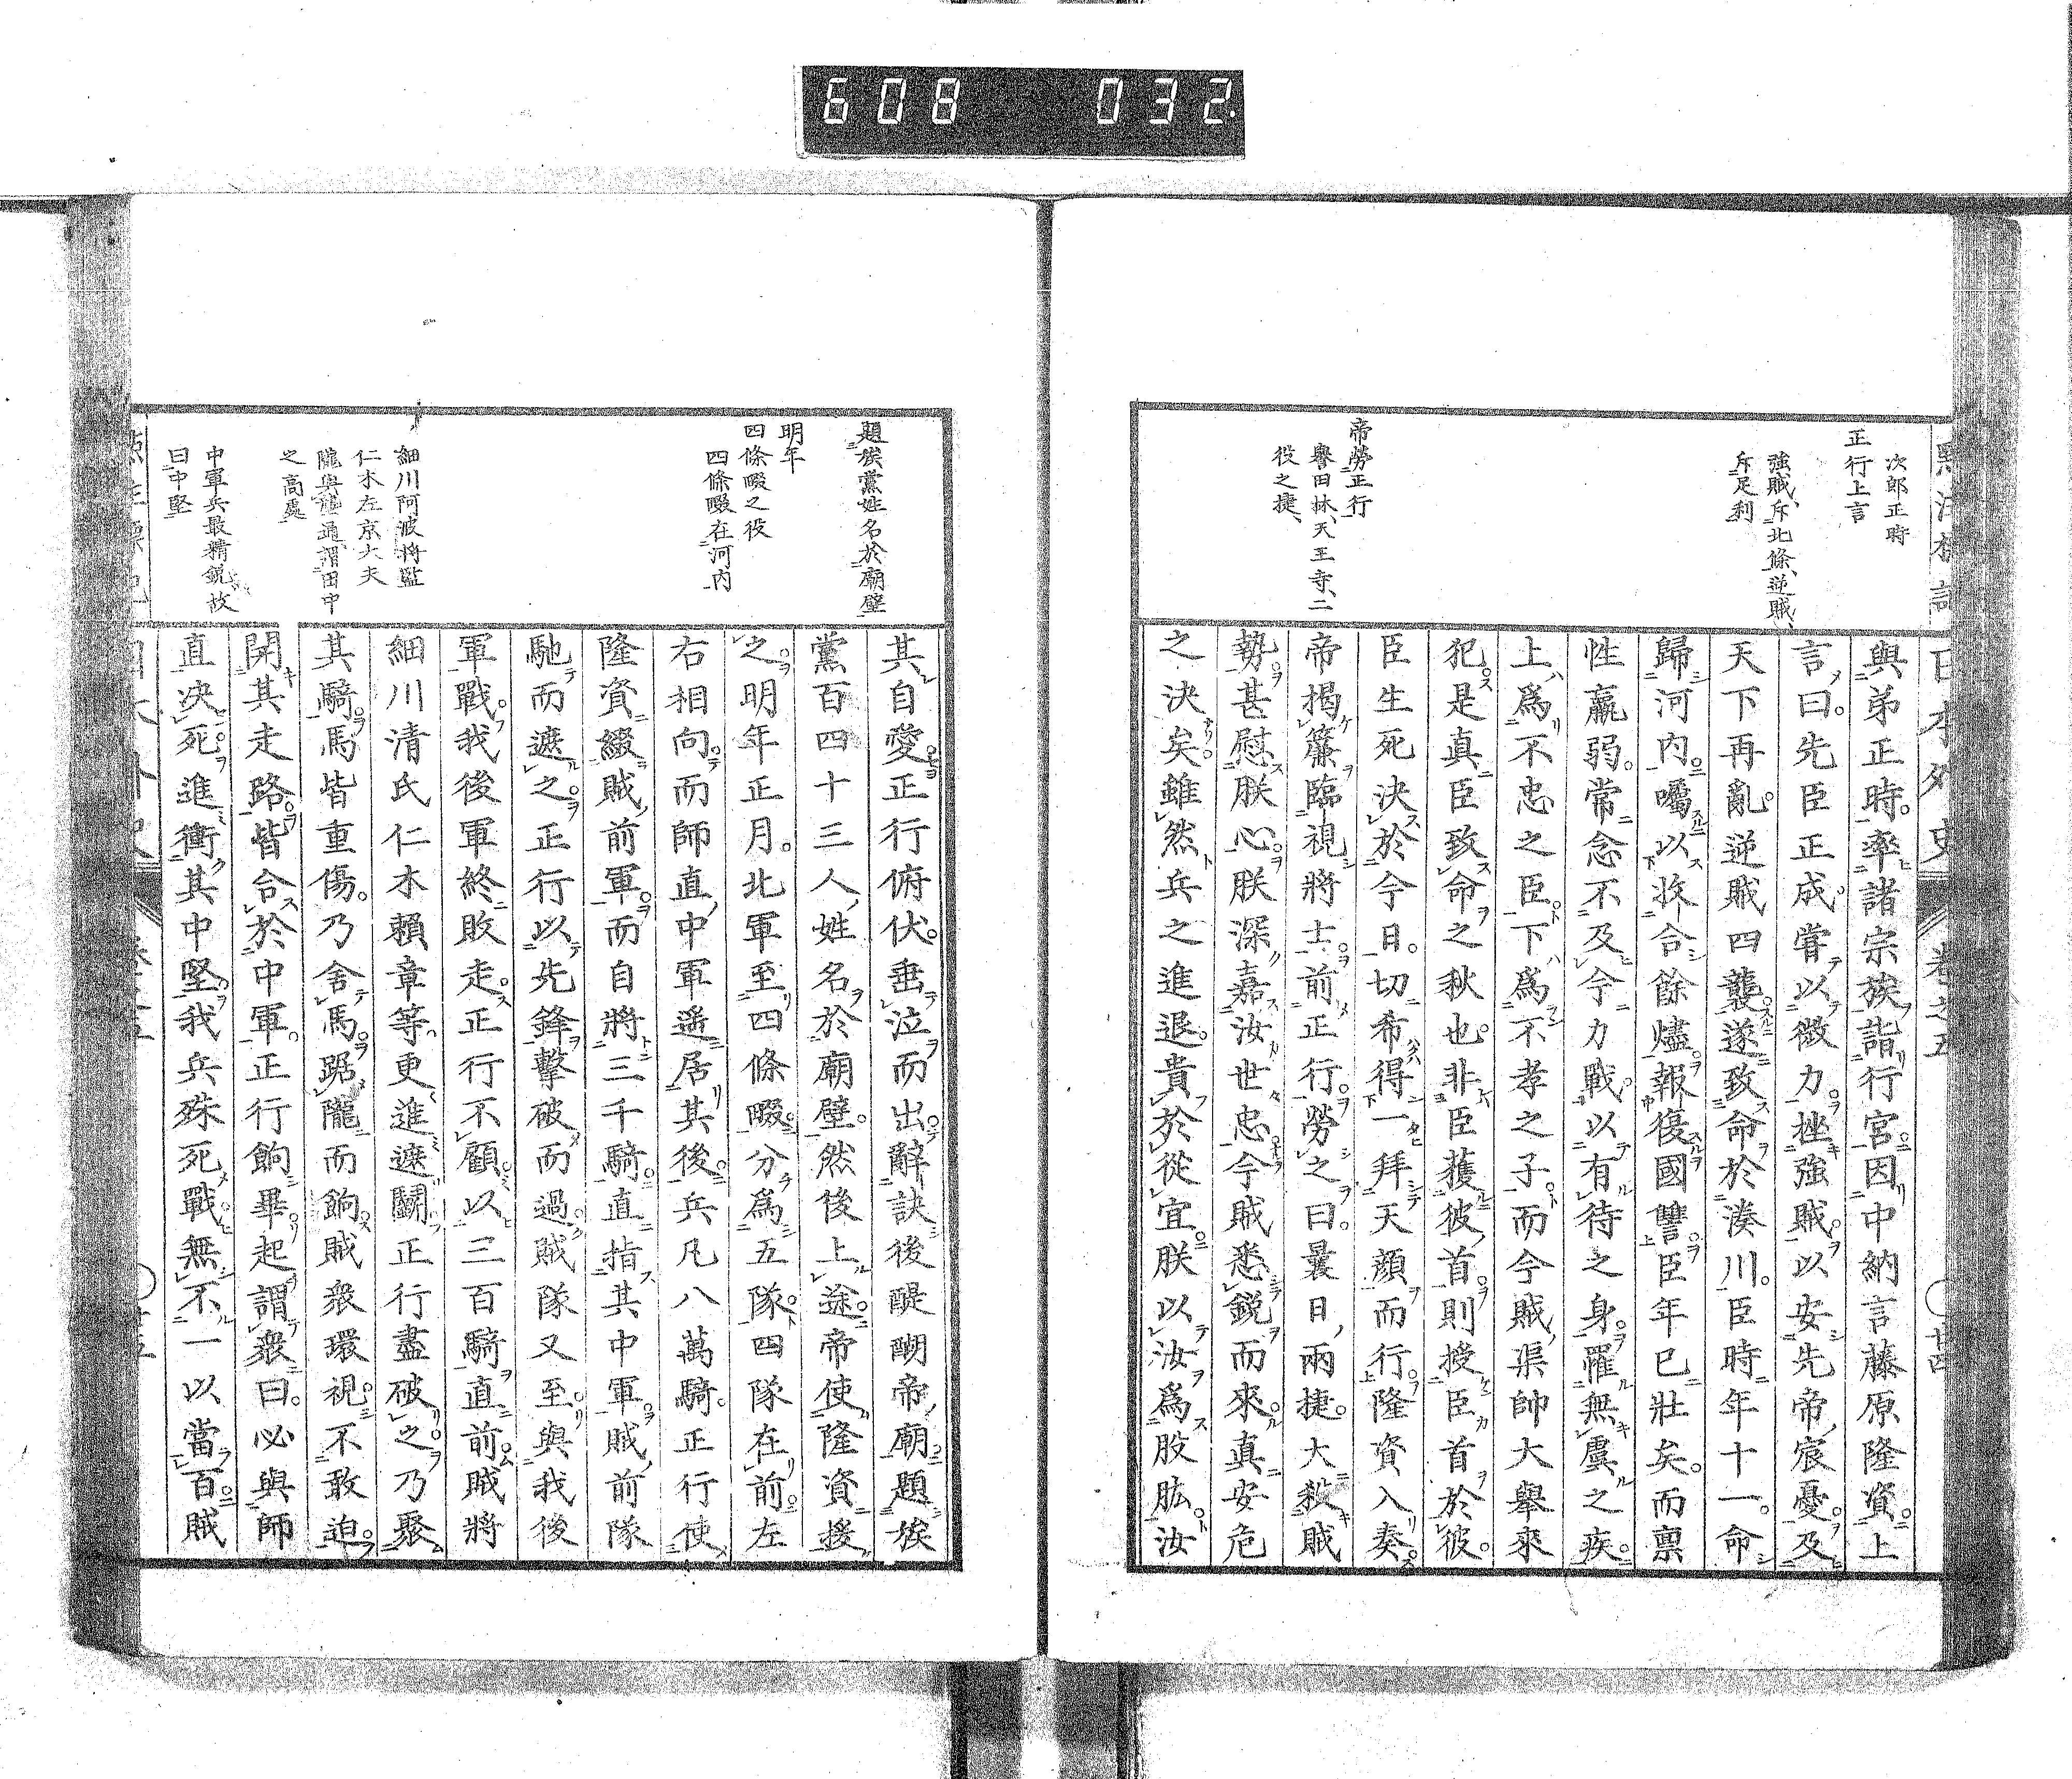 608 032
日本外史 卷之五 廿四
次郎正時
正行上言
強賊、斥北條、逆賊、
斥足利
帝勞正行
譽田林、天王寺、二
役之捷、
與弟正時。率諸宗族詣行宮。因中納言藤原隆資。上
言曰。先臣正成嘗以微力。挫強賊。以安先帝宸憂。及
天下再亂。逆賊四襲。遂致命於湊川。臣時年十一。命
歸河内。囑以收合餘燼。報復國讐。臣年已壯矣。而禀
性羸弱。常念不及今力戰。以有待之身。罹無虞之疾。
上爲不忠之臣。下爲不孝之子。而今賊渠帥大擧來
犯。是真臣致命之秋也。非臣獲彼首。則授臣首於彼。
臣生死決於今日。切希得一拜天顔而行。隆資入奏。
帝揭簾臨視將士。前正行。勞之曰。曩日兩捷。大殺賊
勢。甚慰朕心。朕深嘉汝世忠。今賊悉鋭而來。真安危
之決矣。雖然兵之進退。貴於從宜。朕以汝爲股肱。汝
題族黨姓名於廟壁
明年
四條畷之役
四條畷在河内
細川阿波將監
仁木左京大夫
隴與壟通、謂田中
之高處
中軍兵最精鋭、故
曰中堅
其自愛。正行俯伏。垂泣而出。辭訣後醍醐帝廟。題族
黨百四十三人姓名於廟壁。然後上途。帝使隆資援
之。明年正月。北軍至四條畷。分爲五隊。四隊在前。左
右相向。而師直中軍遥居其後。兵凡八萬騎。正行使
隆資綴賊前軍。而自將三千騎。直指其中軍。賊前隊
馳而遮之。正行以先鋒擊破而過。賊隊又至。與我後
軍戰。我後軍終敗走。正行不顧。以三百騎直前。賊將
細川清氏仁木賴章等。更進遮鬭。正行盡破之。乃聚
其騎。馬皆重傷。乃舍馬。踞隴而餉。賊衆環視。不敢迫。
開其走路。皆合於中軍。正行餉畢。起謂衆曰。必與師
直決死。進衝其中堅。我兵殊死戰。無不一以當百。賊